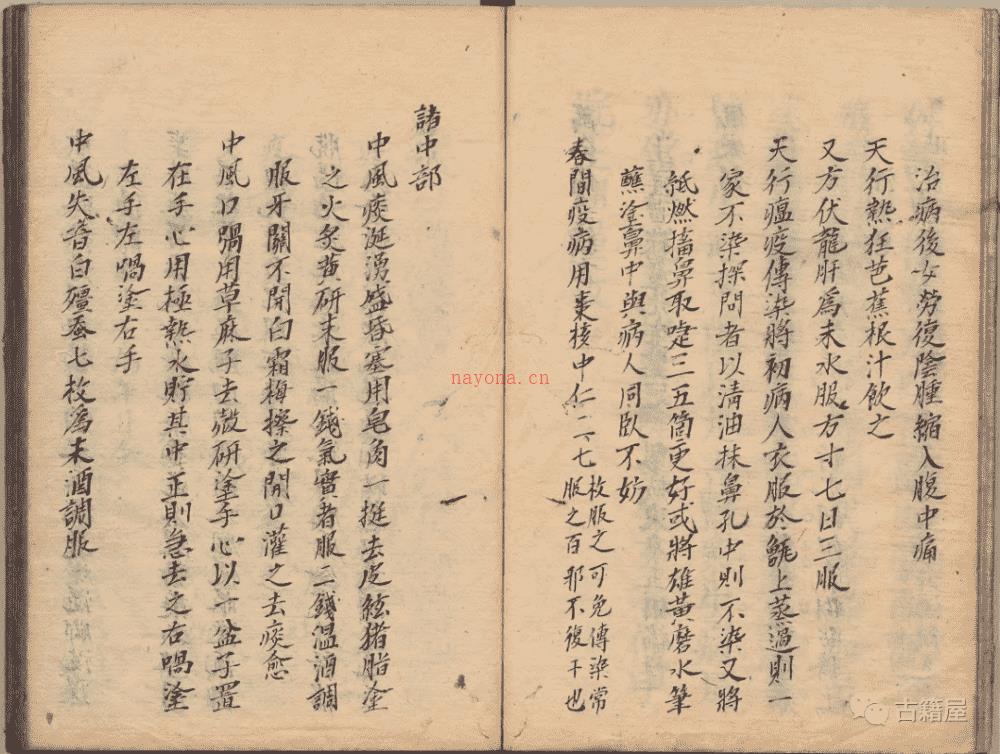 治病後女勞復陰腫縮入腹中痛
天行熱狂芭蕉根汁飲之
又方伏龍肝為末水服方寸七日三服
天行瘟疫傳染將初病人衣服於甑上蒸過則一
家不染探問者以清油抹鼻孔中則不染又將
紙燃搐鼻取嚏三五箇更好或將雄黃磨水筆
蘸塗鼻中與病人同臥不妨
春間疫病用棗核中仁二七枚服之可免傳染常
服之百邪不復干也
諸中部
中風痰涎湧盛昏塞用皂角一挺去皮絃猪脂塗
之火炙黃研末服一錢氣實者服二錢溫酒調
服牙關不開白霜梅擦之開口灌之去痰愈
中風口喎用草麻子去殼研塗手心以一盆子置
在手心用極熱水貯其中正則急去之右喎塗
左手左喎塗右手
中風失音白殭蚕七枚為末酒調服
nayona.cn
古籍屋